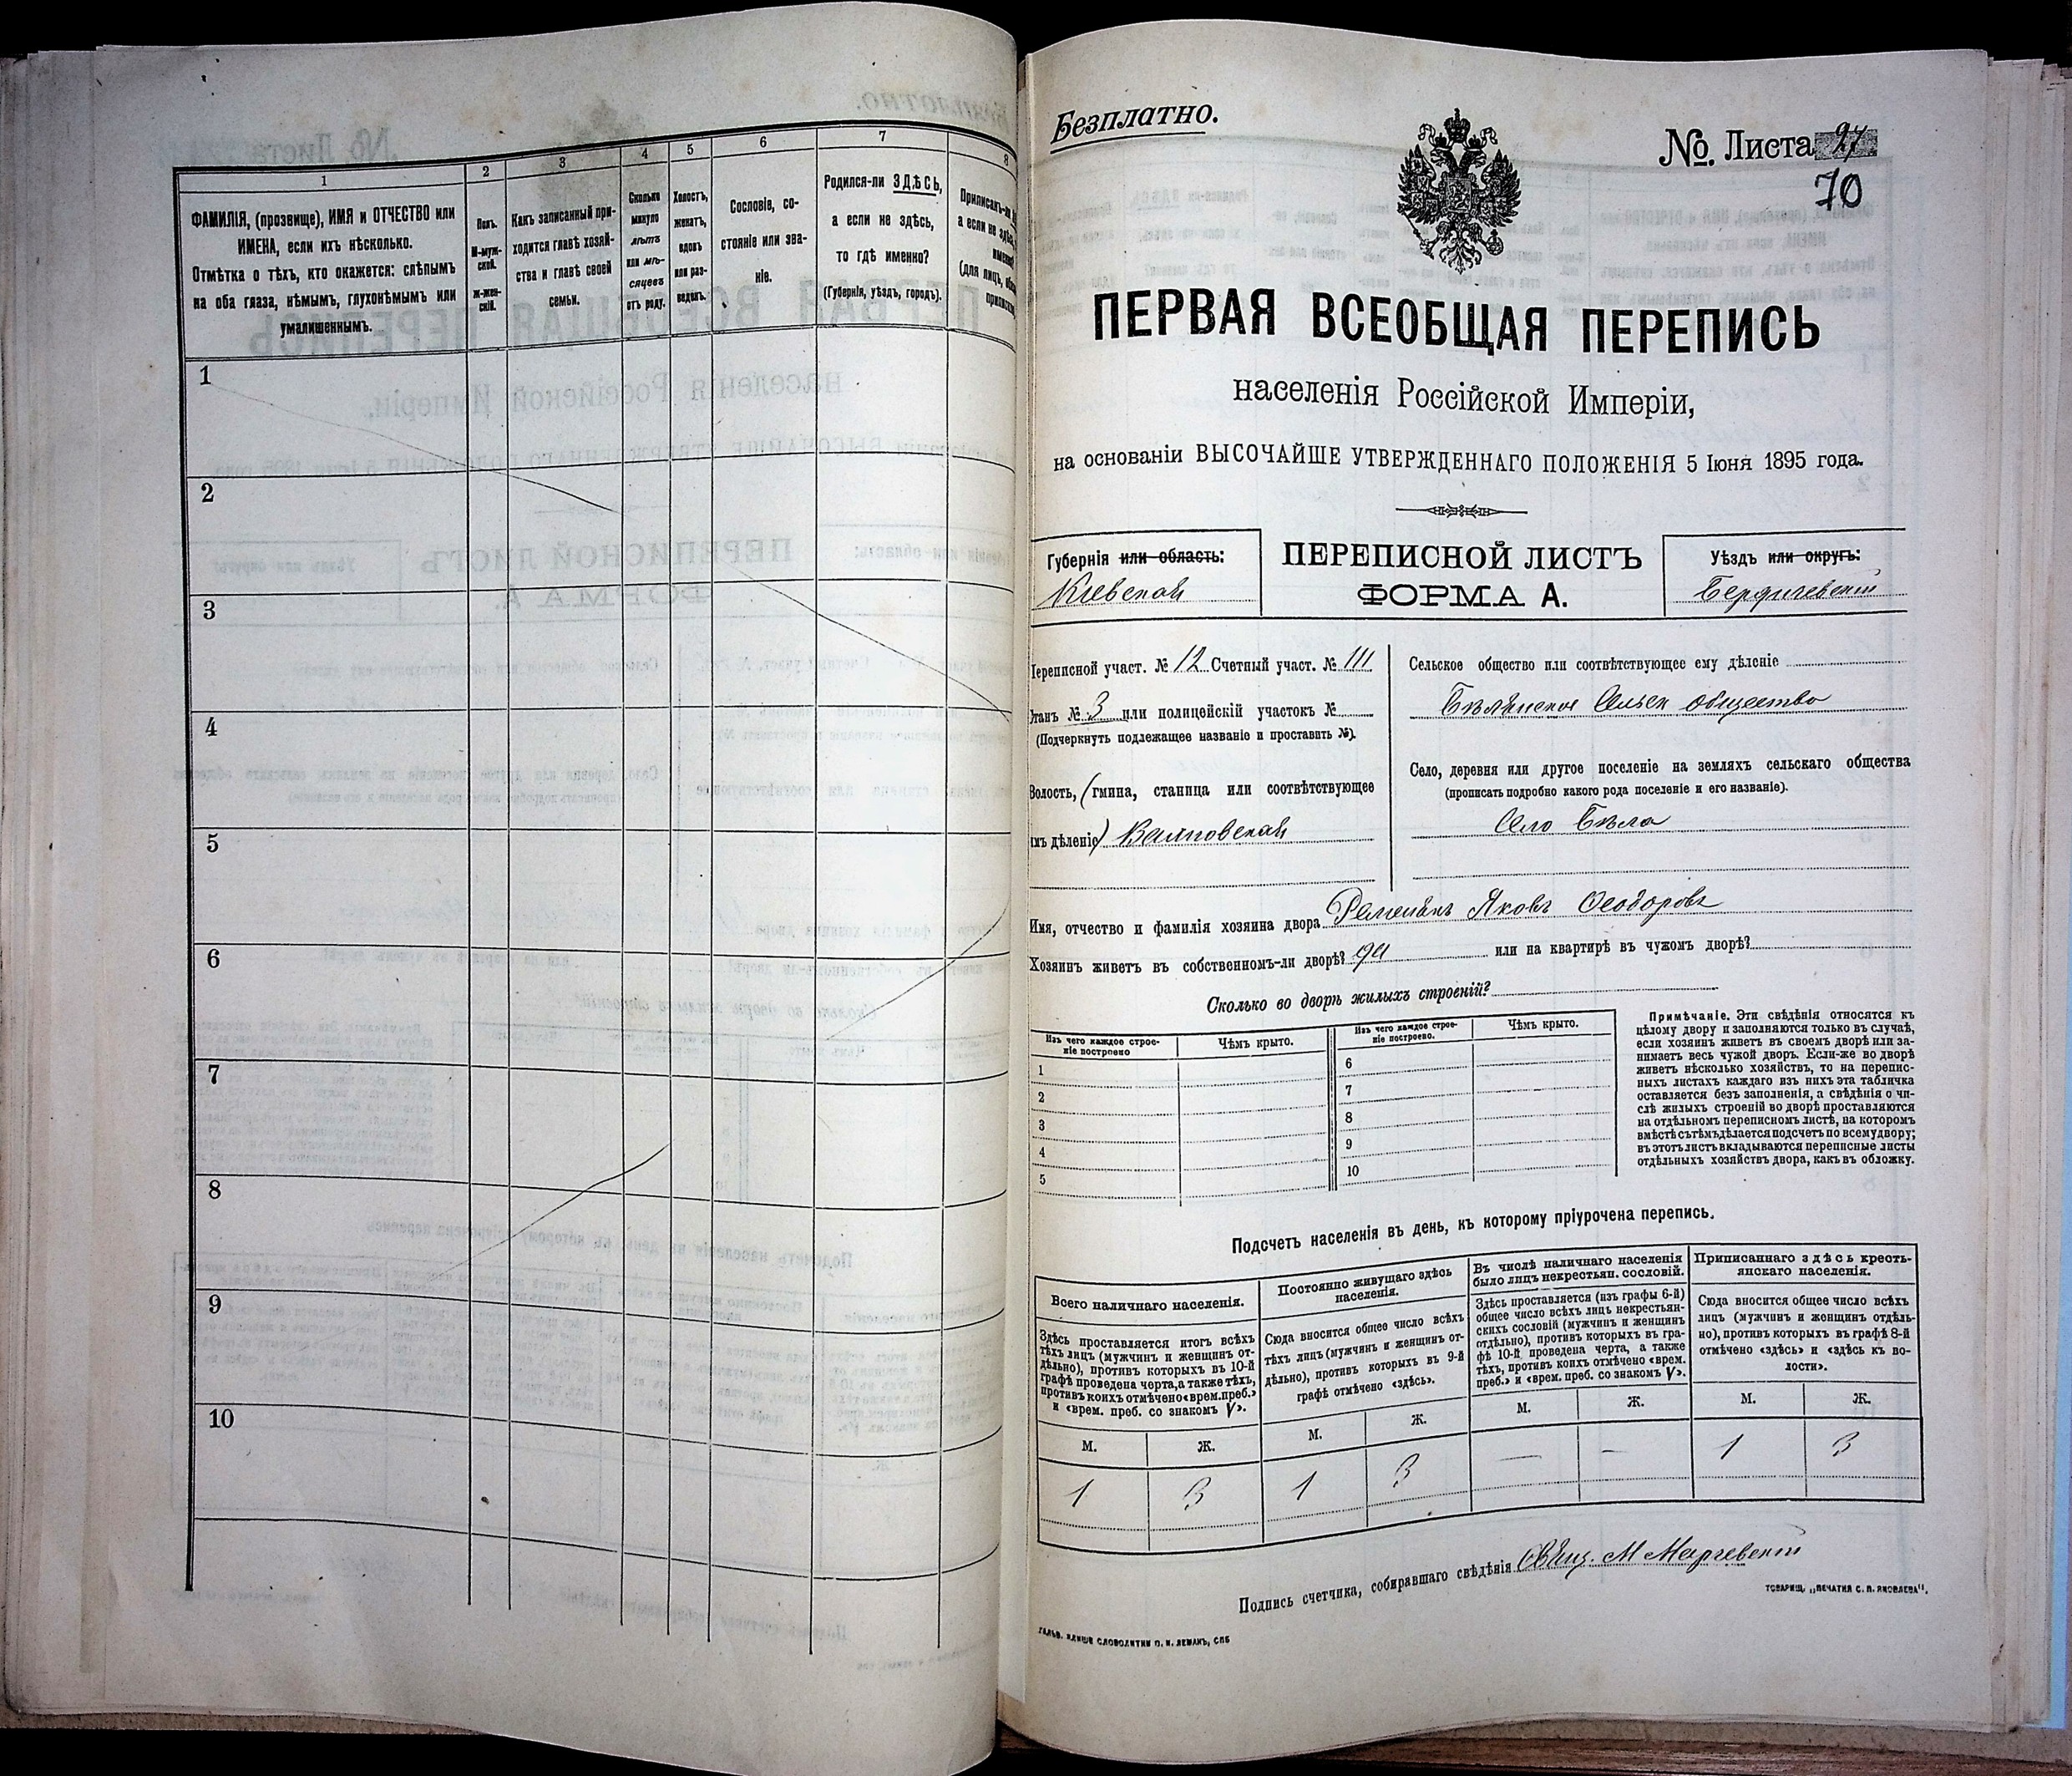 1
2
3
4
5
6
7
8
ФАМИЛІЯ, (прозвище), ИМЯ и ОТЧЕСТВО или
ИМЕНА, если ихъ нѣсколько.
Отмѣтка о тѣхъ, кто окажется: слѣпымъ
на оба глаза, нѣмымъ, глухонѣмымъ или
умалишеннымъ.
Полъ.
М-муж-
ской.
Ж-жен-
скій.
Какъ записанный при-
ходится главѣ хозяй-
ства и главѣ своей
семьи.
Сколько
минуло
лѣтъ
или мѣ-
сяцевъ
отъ роду.
Холостъ,
женатъ,
вдовъ
или раз-
веденъ.
Сословіе, со-
стояніе или зва-
ніе.
Родился-ли ЗДѢСЬ,
а если не здѣсь,
то гдѣ именно?
(Губернія, уѣздъ, городъ).
1
2
3
4
5
6
7
8
9
10
Безплатно.
№. Листа 27
70
ПЕРВАЯ ВСЕОБЩАЯ ПЕРЕПИСЬ
населенія Россійской Имперіи,
на основаніи ВЫСОЧАЙШЕ УТВЕРЖДЕННАГО ПОЛОЖЕНІЯ 5 Іюня 1895 года.
Губернія или область:
Кіевской
ПЕРЕПИСНОЙ ЛИСТЪ
ФОРМА А.
Уѣздъ или округъ:
Бердичевскій
Переписной участ. № 12 Счетный участ. № 111
Станъ № 3 или полицейскій участокъ №
(Подчеркнуть подлежащее названіе и проставить №).
Волость, (гмина, станица или соотвѣтствующее
имъ дѣленіе)
Сельское общество или соотвѣтствующее ему дѣленіе
общество
Село, деревня или другое поселеніе на земляхъ сельскаго общества
(прописать подробно какого рода поселеніе и его названіе).
Село Бѣла
Имя, отчество и фамилія хозяина двора Яковъ Ѳеодоровъ
Хозяинъ живетъ въ собственномъ-ли дворѣ? или на квартирѣ въ чужомъ дворѣ?
Сколько во дворѣ жилыхъ строеній?
Изъ чего каждое строе-
ніе построено
Чѣмъ крыто.
1
2
3
4
5
Изъ чего каждое строе-
ніе построено.
Чѣмъ крыто.
6
7
8
9
10
Примѣчаніе. Эти свѣдѣнія относятся къ
цѣлому двору и заполняются только въ случаѣ,
если хозяинъ живетъ въ своемъ дворѣ или за-
нимаетъ весь чужой дворъ. Если-же во дворѣ
живетъ нѣсколько хозяйствъ, то на перепис-
ныхъ листахъ каждаго изъ нихъ эта табличка
оставляется безъ заполненія, а свѣдѣнія о чи-
слѣ жилыхъ строеній во дворѣ проставляются
на отдѣльномъ переписномъ листѣ, на которомъ
вмѣстѣ съ тѣмъ дѣлается подсчетъ по всему двору;
въ этотъ листъ вкладываются переписные листы
отдѣльныхъ хозяйствъ двора, какъ въ обложку.
Подсчетъ населенія въ день, къ которому пріурочена перепись.
Всего наличнаго населенія.
Здѣсь проставляется итогъ всѣхъ
тѣхъ лицъ (мужчинъ и женщинъ от-
дѣльно), противъ которыхъ въ 10-й
графѣ проведена черта, а также тѣхъ,
противъ коихъ отмѣчено «врем. преб.»
и «врем. преб. со знакомъ V».
М.
Ж.
1
3
Постоянно живущаго здѣсь
населенія.
Сюда вносится общее число всѣхъ
тѣхъ лицъ (мужчинъ и женщинъ от-
дѣльно), противъ которыхъ въ 9-й
графѣ отмѣчено «здѣсь».
М.
Ж.
1
3
Въ числѣ наличнаго населенія
было лицъ некрестьян. сословій.
Здѣсь проставляется (изъ графы 6-й)
общее число всѣхъ лицъ некрестьян-
скихъ сословій (мужчинъ и женщинъ
отдѣльно), противъ которыхъ въ гра-
фѣ 10-й проведена черта, а также
тѣхъ, противъ коихъ отмѣчено «врем.
преб.» и «врем. преб. со знакомъ V».
М.
Ж.
—
—
Приписаннаго здѣсь кресть-
янскаго населенія.
Сюда вносится общее число всѣхъ
лицъ (мужчинъ и женщинъ отдѣль-
но), противъ которыхъ въ графѣ 8-й
отмѣчено «здѣсь» и «здѣсь къ во-
лости».
М.
Ж.
1
3
Подпись счетчика, собиравшаго свѣдѣнія
ТОВАРИЩ. „ПЕЧАТНЯ С. П. ЯКОВЛЕВА".
СЛОВОЛИТНИ О. И. ЛЕМАНЪ, СПБ